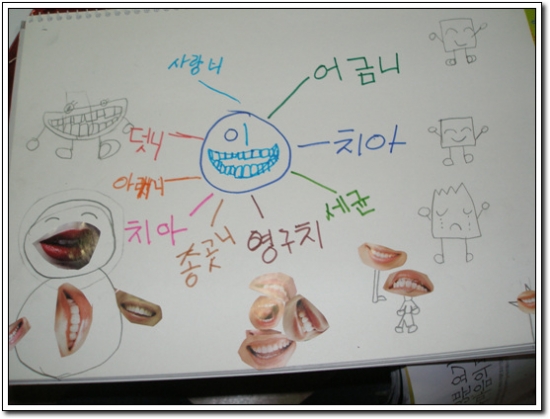 사랑니
어금니
이
덧니
치아
아랫니
세균
치아
송곳니
영구치